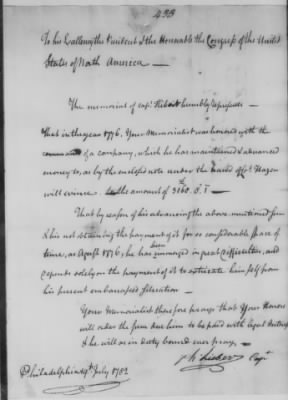 433
To his Excellency the President & the Honorable the Congress of the United
States of North America —
The memorial of Capt. humbly represents —
That in the year 1776, Your Memorialist was honored with the
command of a company, which he has maintained & advanced
money to, as by the enclosed note under the hand of Hazen
will evince to the amount of
That by reason of his advancing the above mentioned sum
& his not obtaining the payment of it for so considerable space of
time, as April 1776, he has been involved in great difficulties, and
depends solely on the payment of it to extricate himself from
his present embarrassed situation —
Your Memorialist therefore prays that Your Honors
will order the sum due him to be paid with legal Interest
& he will as in duty bound ever pray —
Capt
Philadelphia July 1782